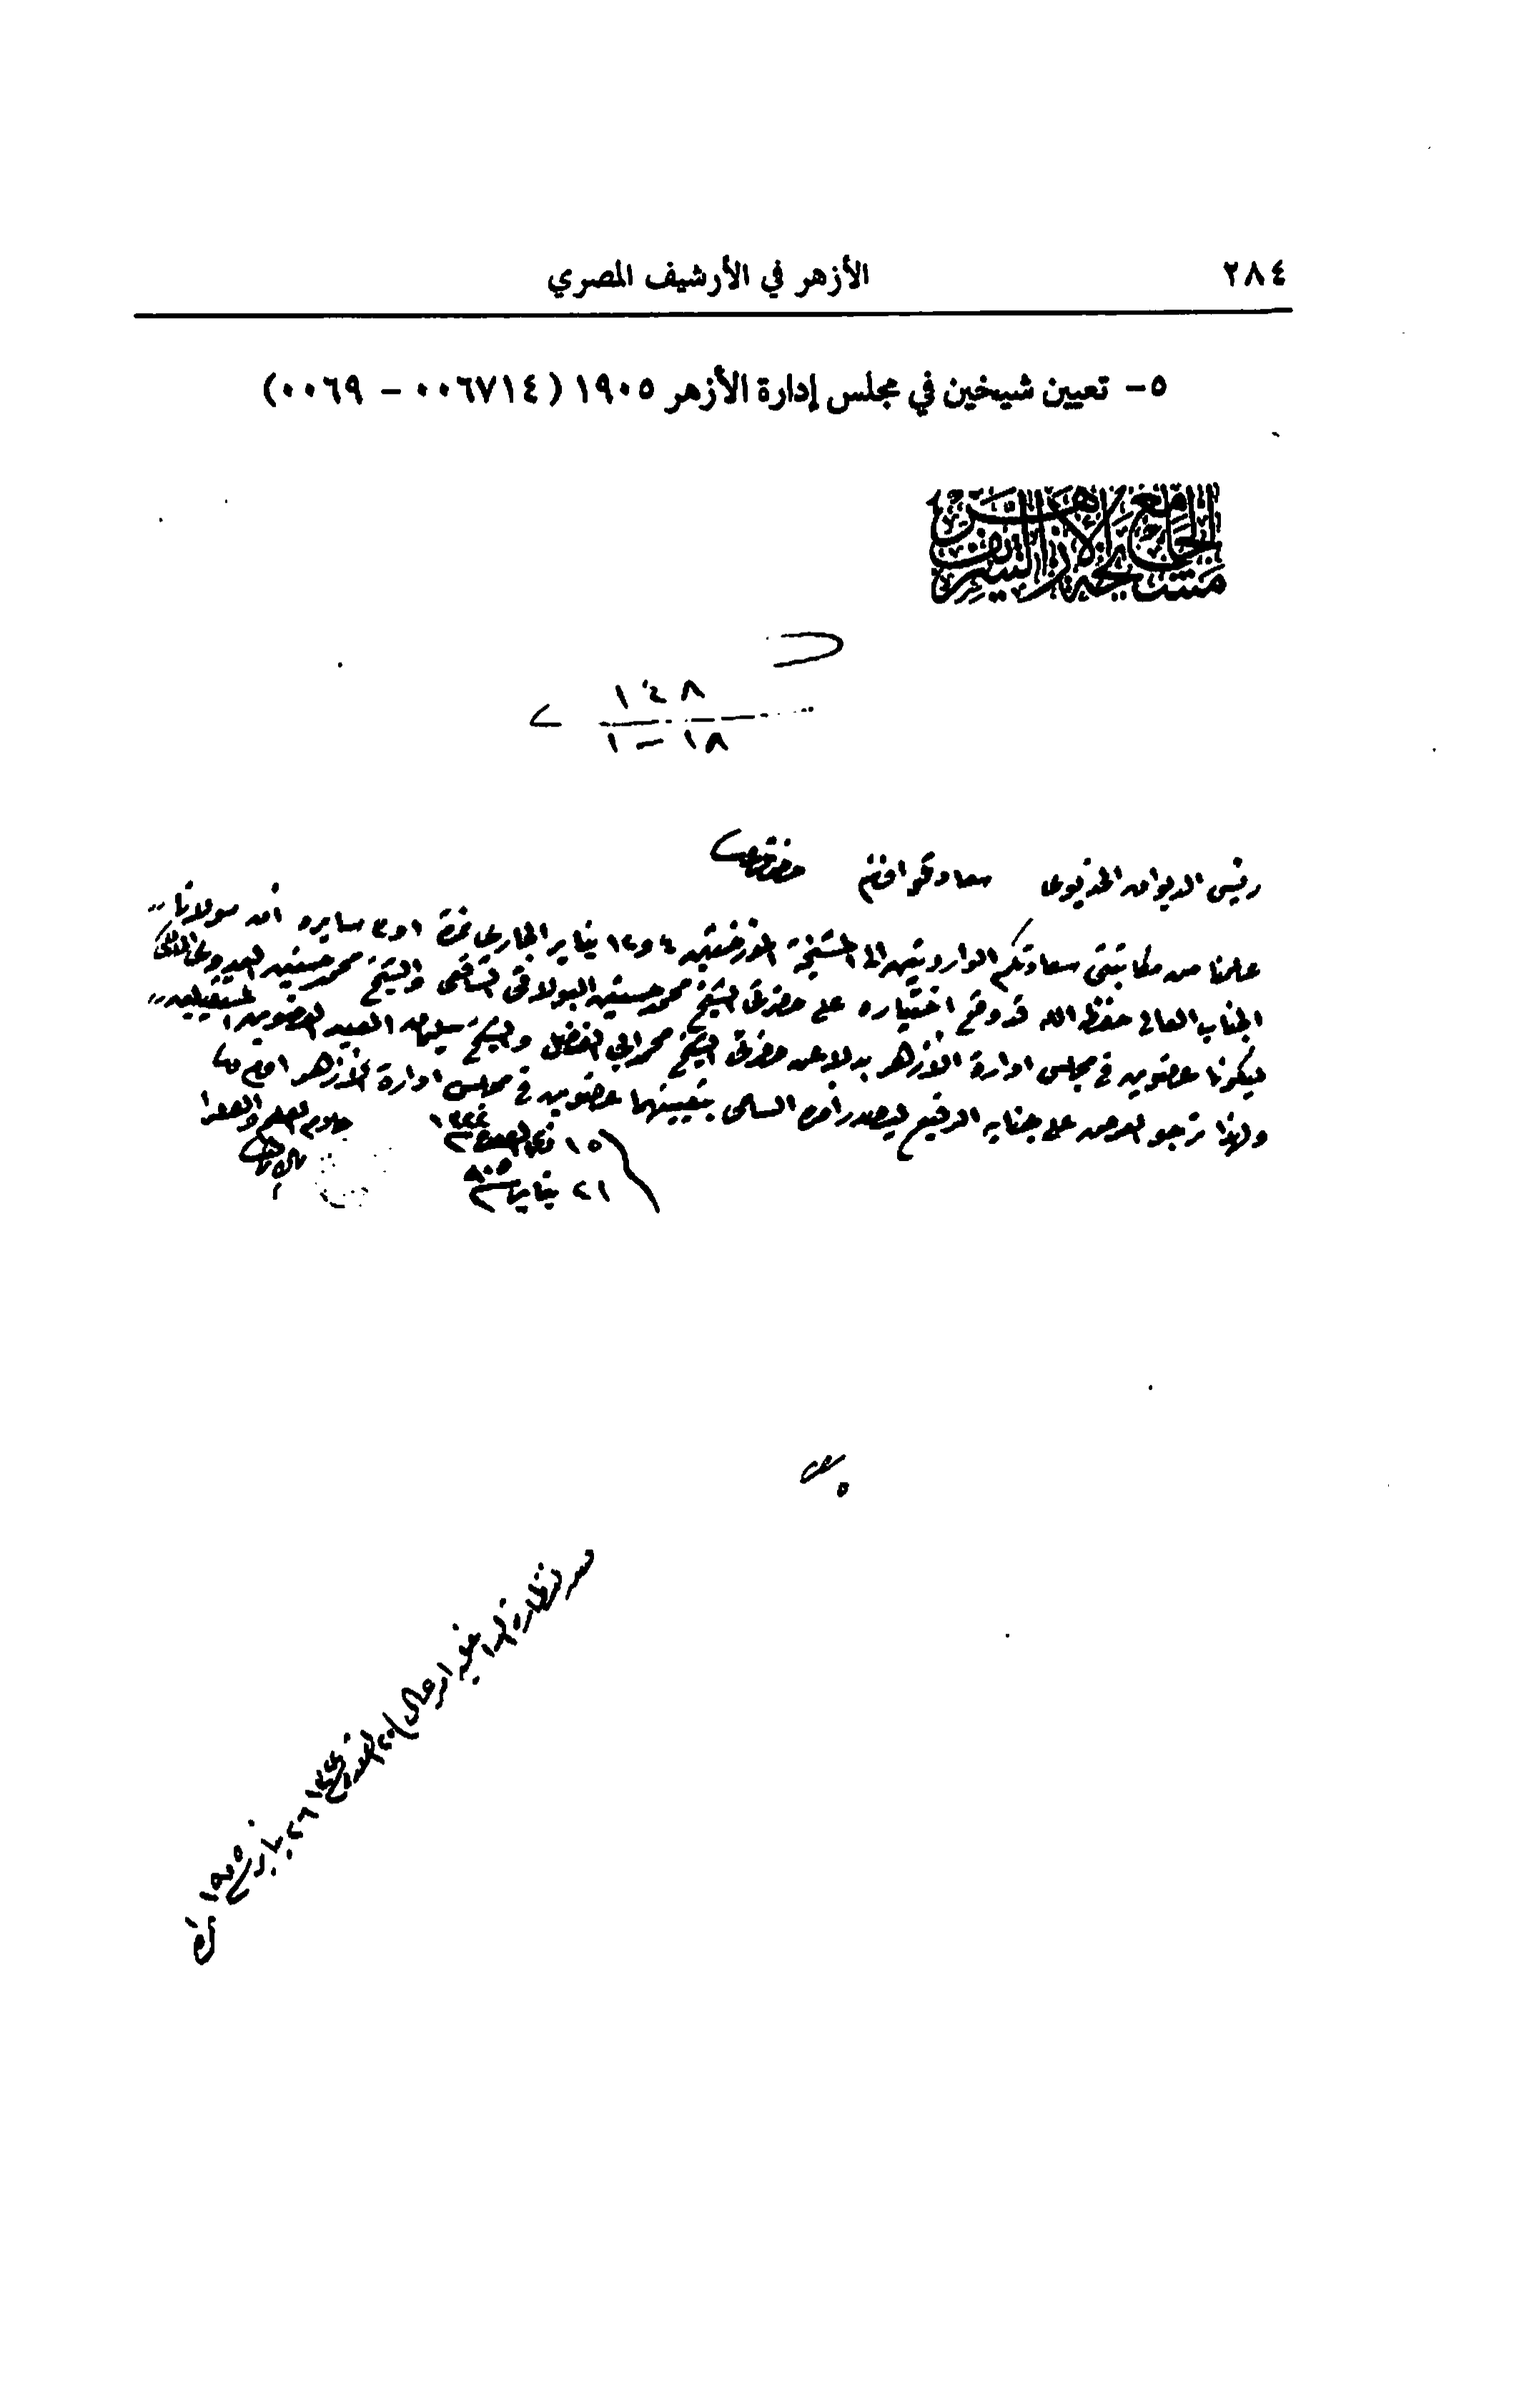 ٢٨٤
الأزهر في الأرشيف المصري
٥- تعيين شيخين في مجلس إدارة الأزهر ١٩٠٥ (٠٠٦٧١٤ - ٠٠٦٩)
مشيخة الجامع الأزهر الشريف
١٤٨
١٨ - ١
رئيس الديوان الخديوى سعادتلو افندم حضرتلرى
علمنا من مكاتبتى سعادتكم الواردتين الى المشيخة المؤرختين ٤ و١٢ يناير الجارى نمرة ١ و٣ سايره ان مولانا
الجناب العالى حفظه الله قد وقع اختياره على حضرتى الشيخ محمد حسنين البولاقى الشافعى والشيخ محمد حسنين العدوى المالكى
ليكونا عضوين فى مجلس ادارة الازهر بدلا عن حضرتى الشيخ محمد ابى الفضل والشيخ سليمان العبد العضوين المستقيلين
ولهذا نرجو العرض على جنابه الرفيع ليصدر أمره السامى بتعيينهما عضوين فى مجلس ادارة الازهر افندم
١٥ ذى القعدة سنة ١٣٢٢
خادم العلم والفقرا
٢١ يناير سنة ٩٠٥